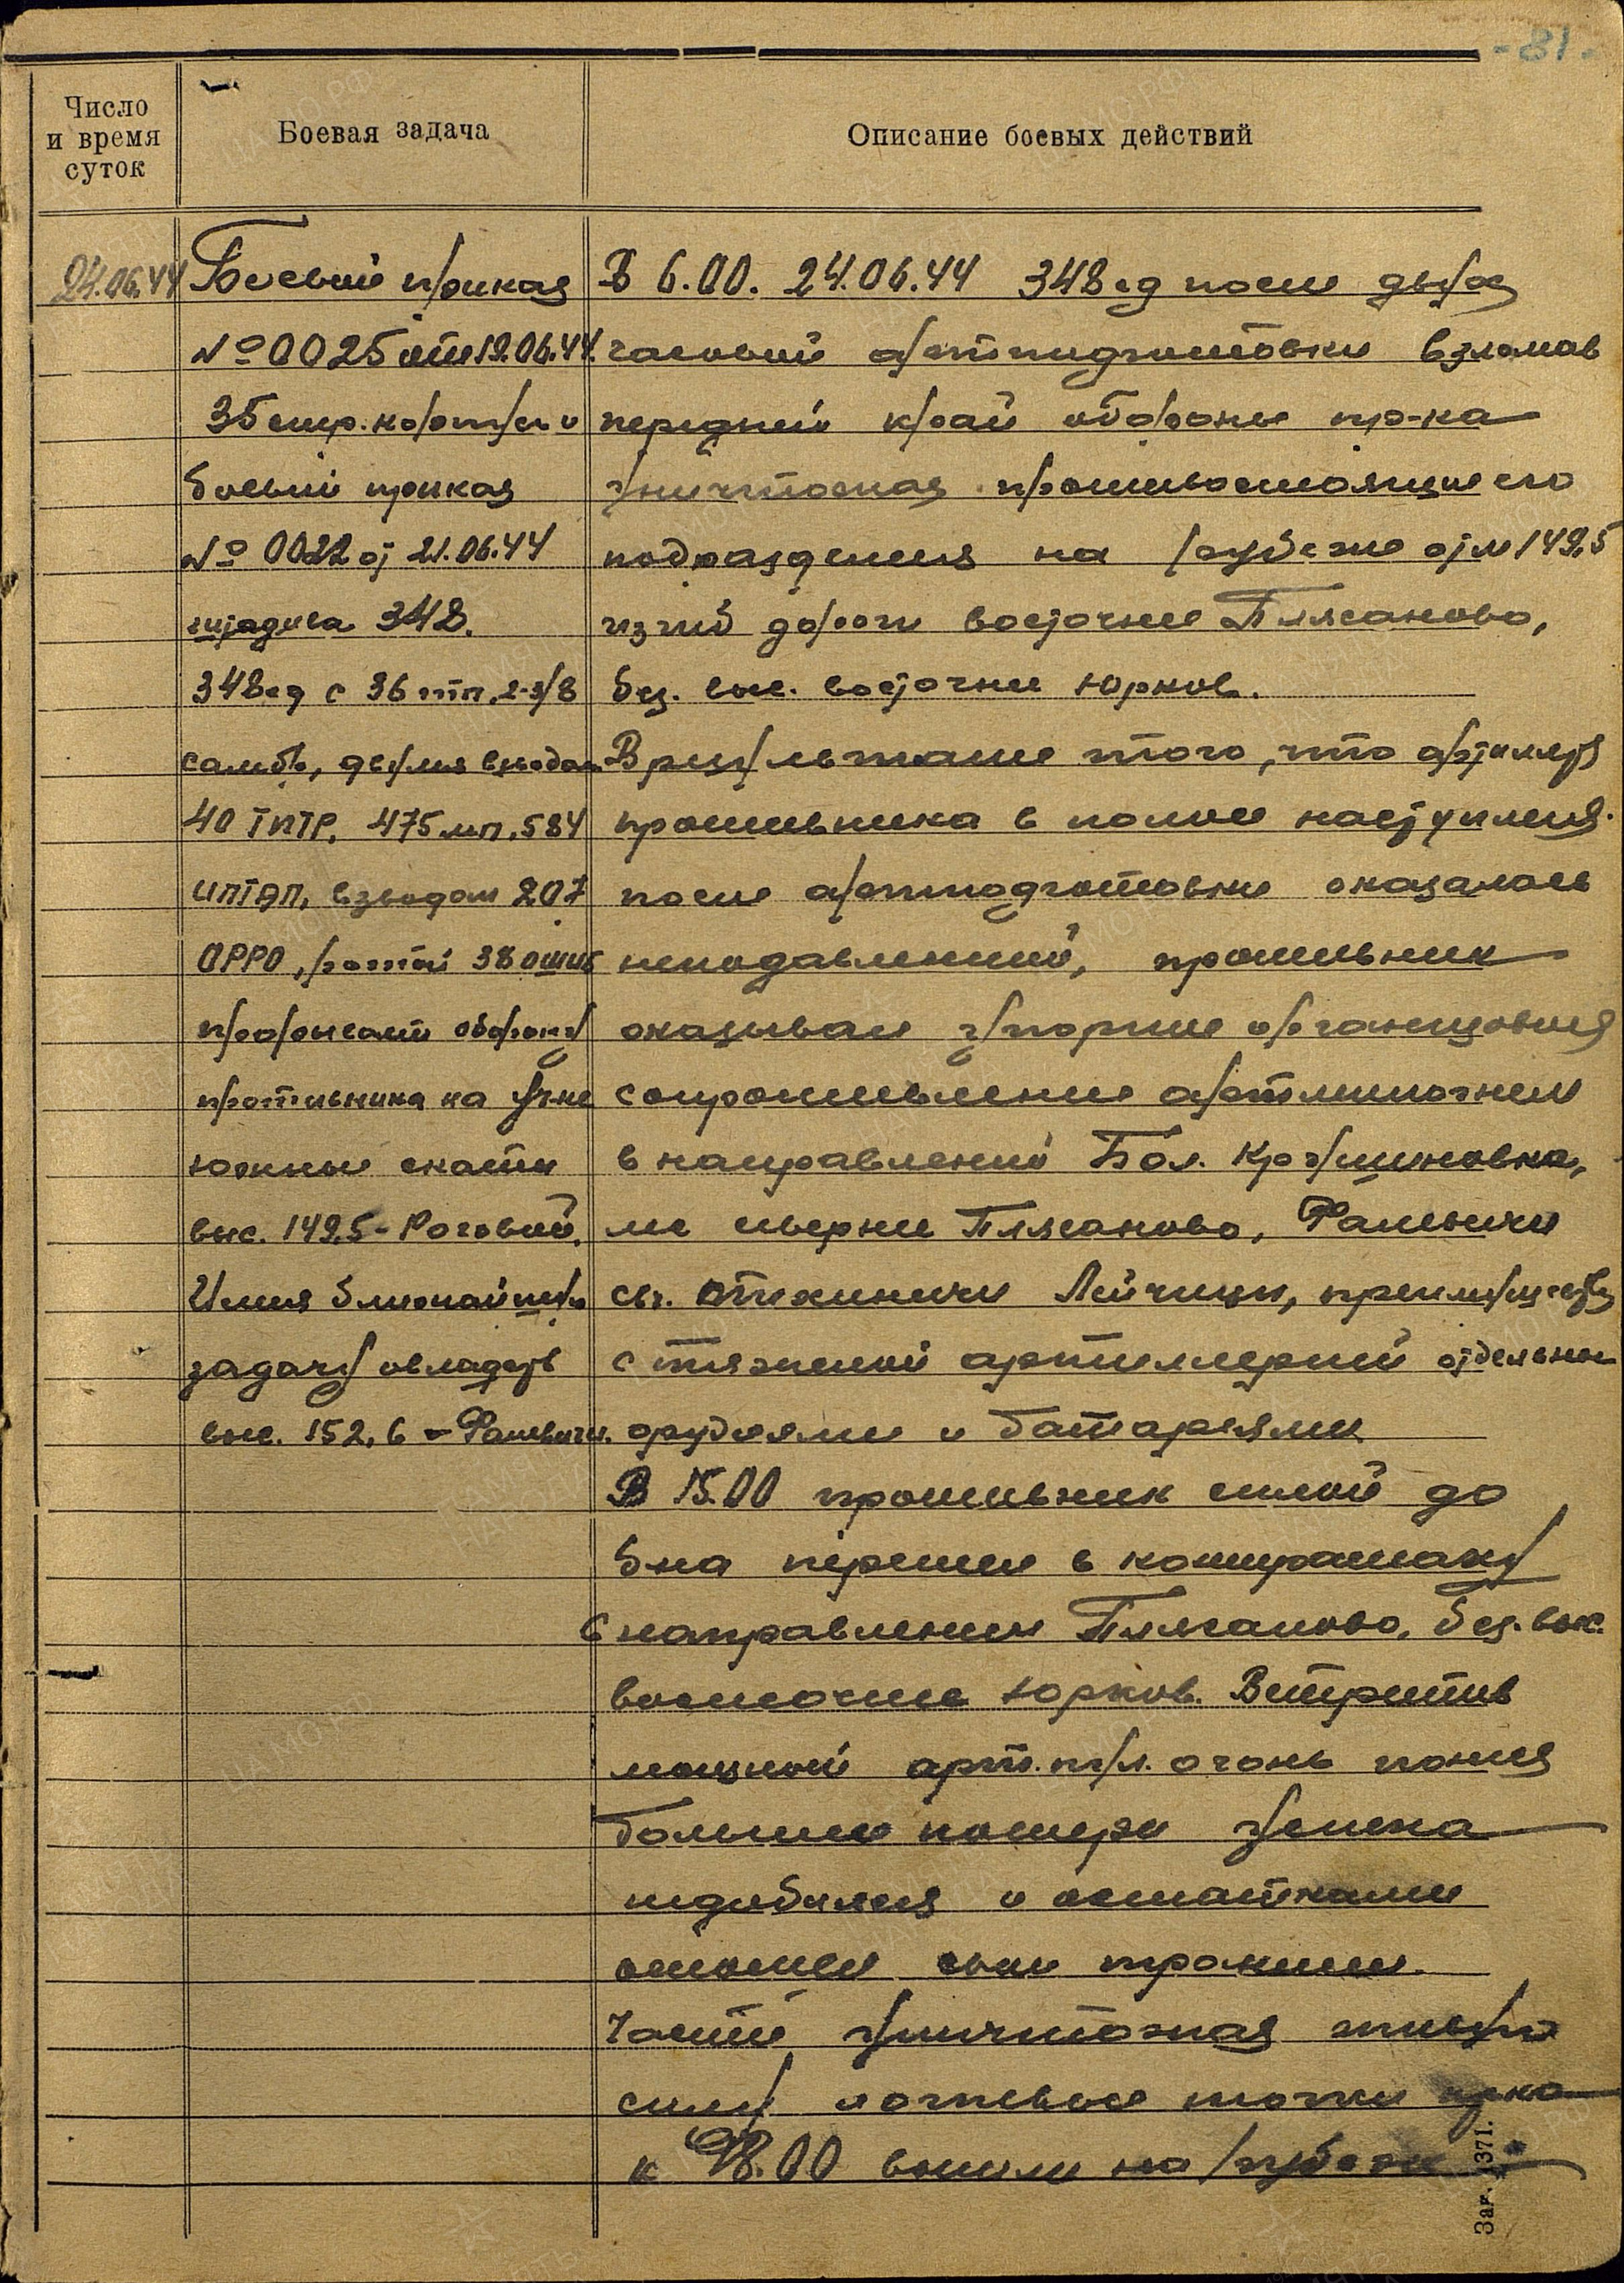 - 81 -
Число
и время
суток
Боевая задача
Описание боевых действий
24.06.44
Боевой приказ
№ 0025 от 19.06.44.
35 стр. корпуса и
боевой приказ
№ 0022 от 21.06.44
штадива 348.
348 сд с 36 тп, 2-3/8
самбр, двумя взводами
40 ТПТР, 475 мп, 584
ИПТАП, взводом 207
ОРРО, ротой 38 ошиб
прорывает оборону
противника на уч-ке
южные скаты
выс. 149,5 - Роговой.
Имея ближайшую
задачу овладеть
выс. 152,6 - Фалевичи.
В 6.00. 24.06.44 348 сд после двух
часовой артподготовки взломав
передний край обороны пр-ка
уничтожая противостоящие его
подразделения на рубеже отм 149,5
изгиб дороги восточнее Плясаново,
без. выс. восточнее Юрков.
В результате того, что артиллерия
противника в полосе наступления
после артподготовки оказалась
неподавленной, противник
оказывал упорное организованное
сопротивление артминогнем
в направлении Бол. Крушиновка,
лес севернее Плясаново, Фалевичи
св. Тихиничи Лейчицы, преимуществ
с тяжелой артиллерией отдельными
орудиями и батареями
В 15.00 противник силой до
б-на перешел в контратаку
в направлении Плясаново, без. выс.
восточнее Юрков. Встретив
мощный арт. пул. огонь понеся
большие потери успеха
не добился и остатками
отошел свои траншеи.
Части уничтожая живую
силу и огневые точки пр-ка
к 18.00 вышли на рубеж
Заг. 1371.